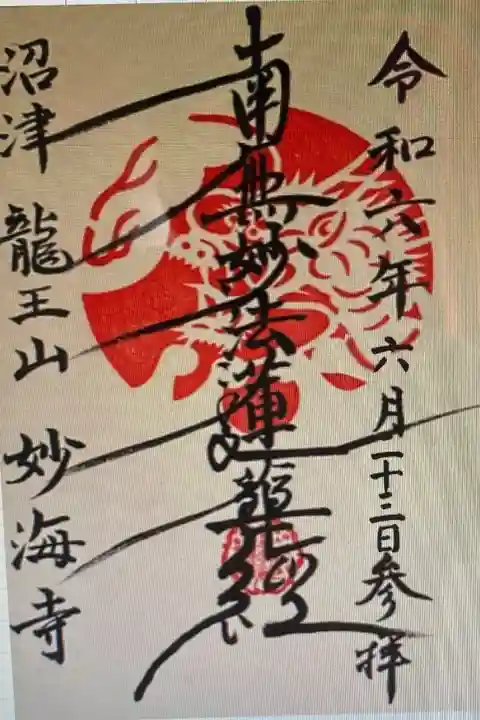 令和六年六月二十三日参拝
南無妙法蓮華経
沼津 龍王山 妙海寺